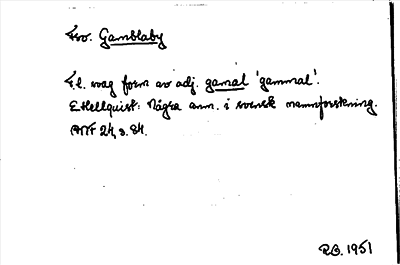 Fsv. Gamblaby
F.l. svag form av adj. gamal 'gammal'.
E. Hellquist: Några anm. i svensk namnforskning.
ANF 24, s. 84.
R.O. 1951